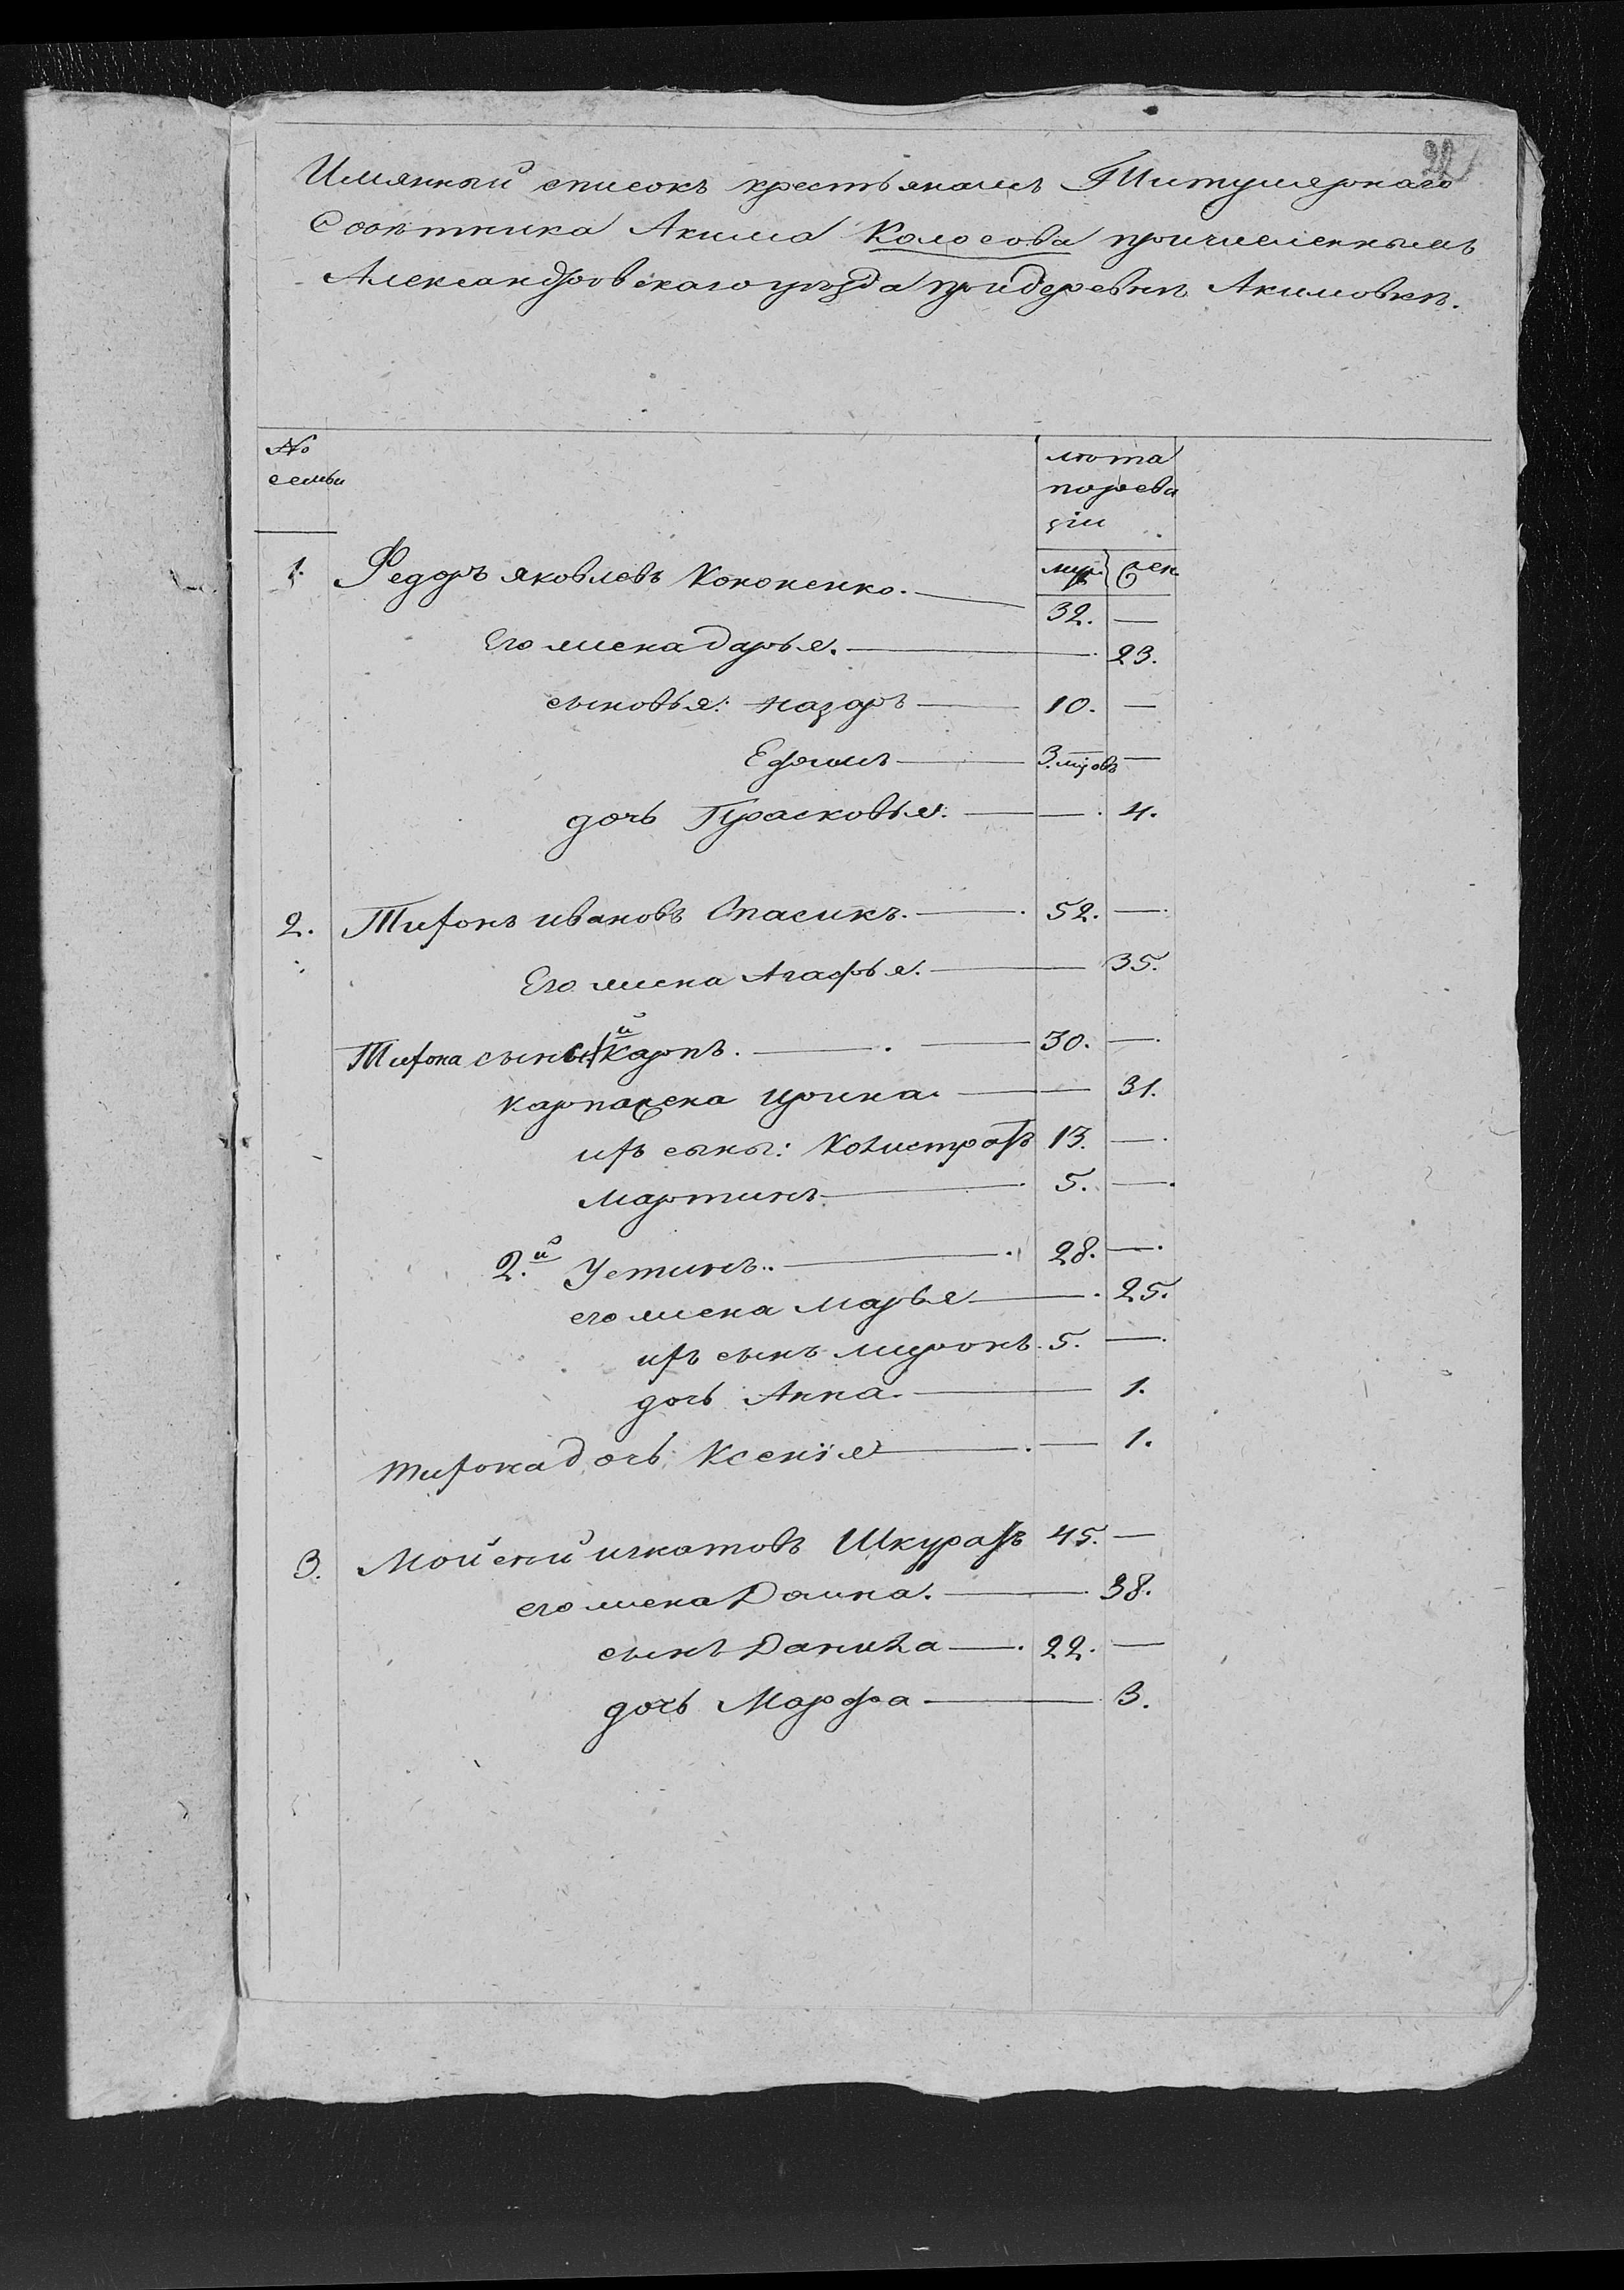 Имянный списокъ крестьянамъ Титулярнаго
Советника Акима Колосова причисленнымъ
Александровскаго уѣзда придеревнѣ Акимовкѣ.
№ семьи
лѣта
пореви
зіи
муж. жен
1. Федоръ яковлевъ Кононенко. — 32. —
Его жена дарья. — 23.
сыновья: назаръ — 10. —
Ефимъ — 3. —
дочь Прасковья: — 4.
2. Тихонъ ивановъ Спасикъ. — 52. —
Его жена Агафья. — 35.
Тихона сыны 1й Карпъ. — 30. —
Карпажена ирина. — 31.
ихъ сыны: Калистратъ 13. —
Мартинъ — 5. —
2.й Устинъ. — 28. —
его жена Марья — 25.
ихъ сынъ миронъ. 5. —
дочь Анна. — 1.
тихонадочь Ксенія — 1.
3. Мойсей игнатовъ Шкуратъ 45. —
его жена Домна. — 38.
сынъ Данила — 22. —
дочь Марфа — 3.